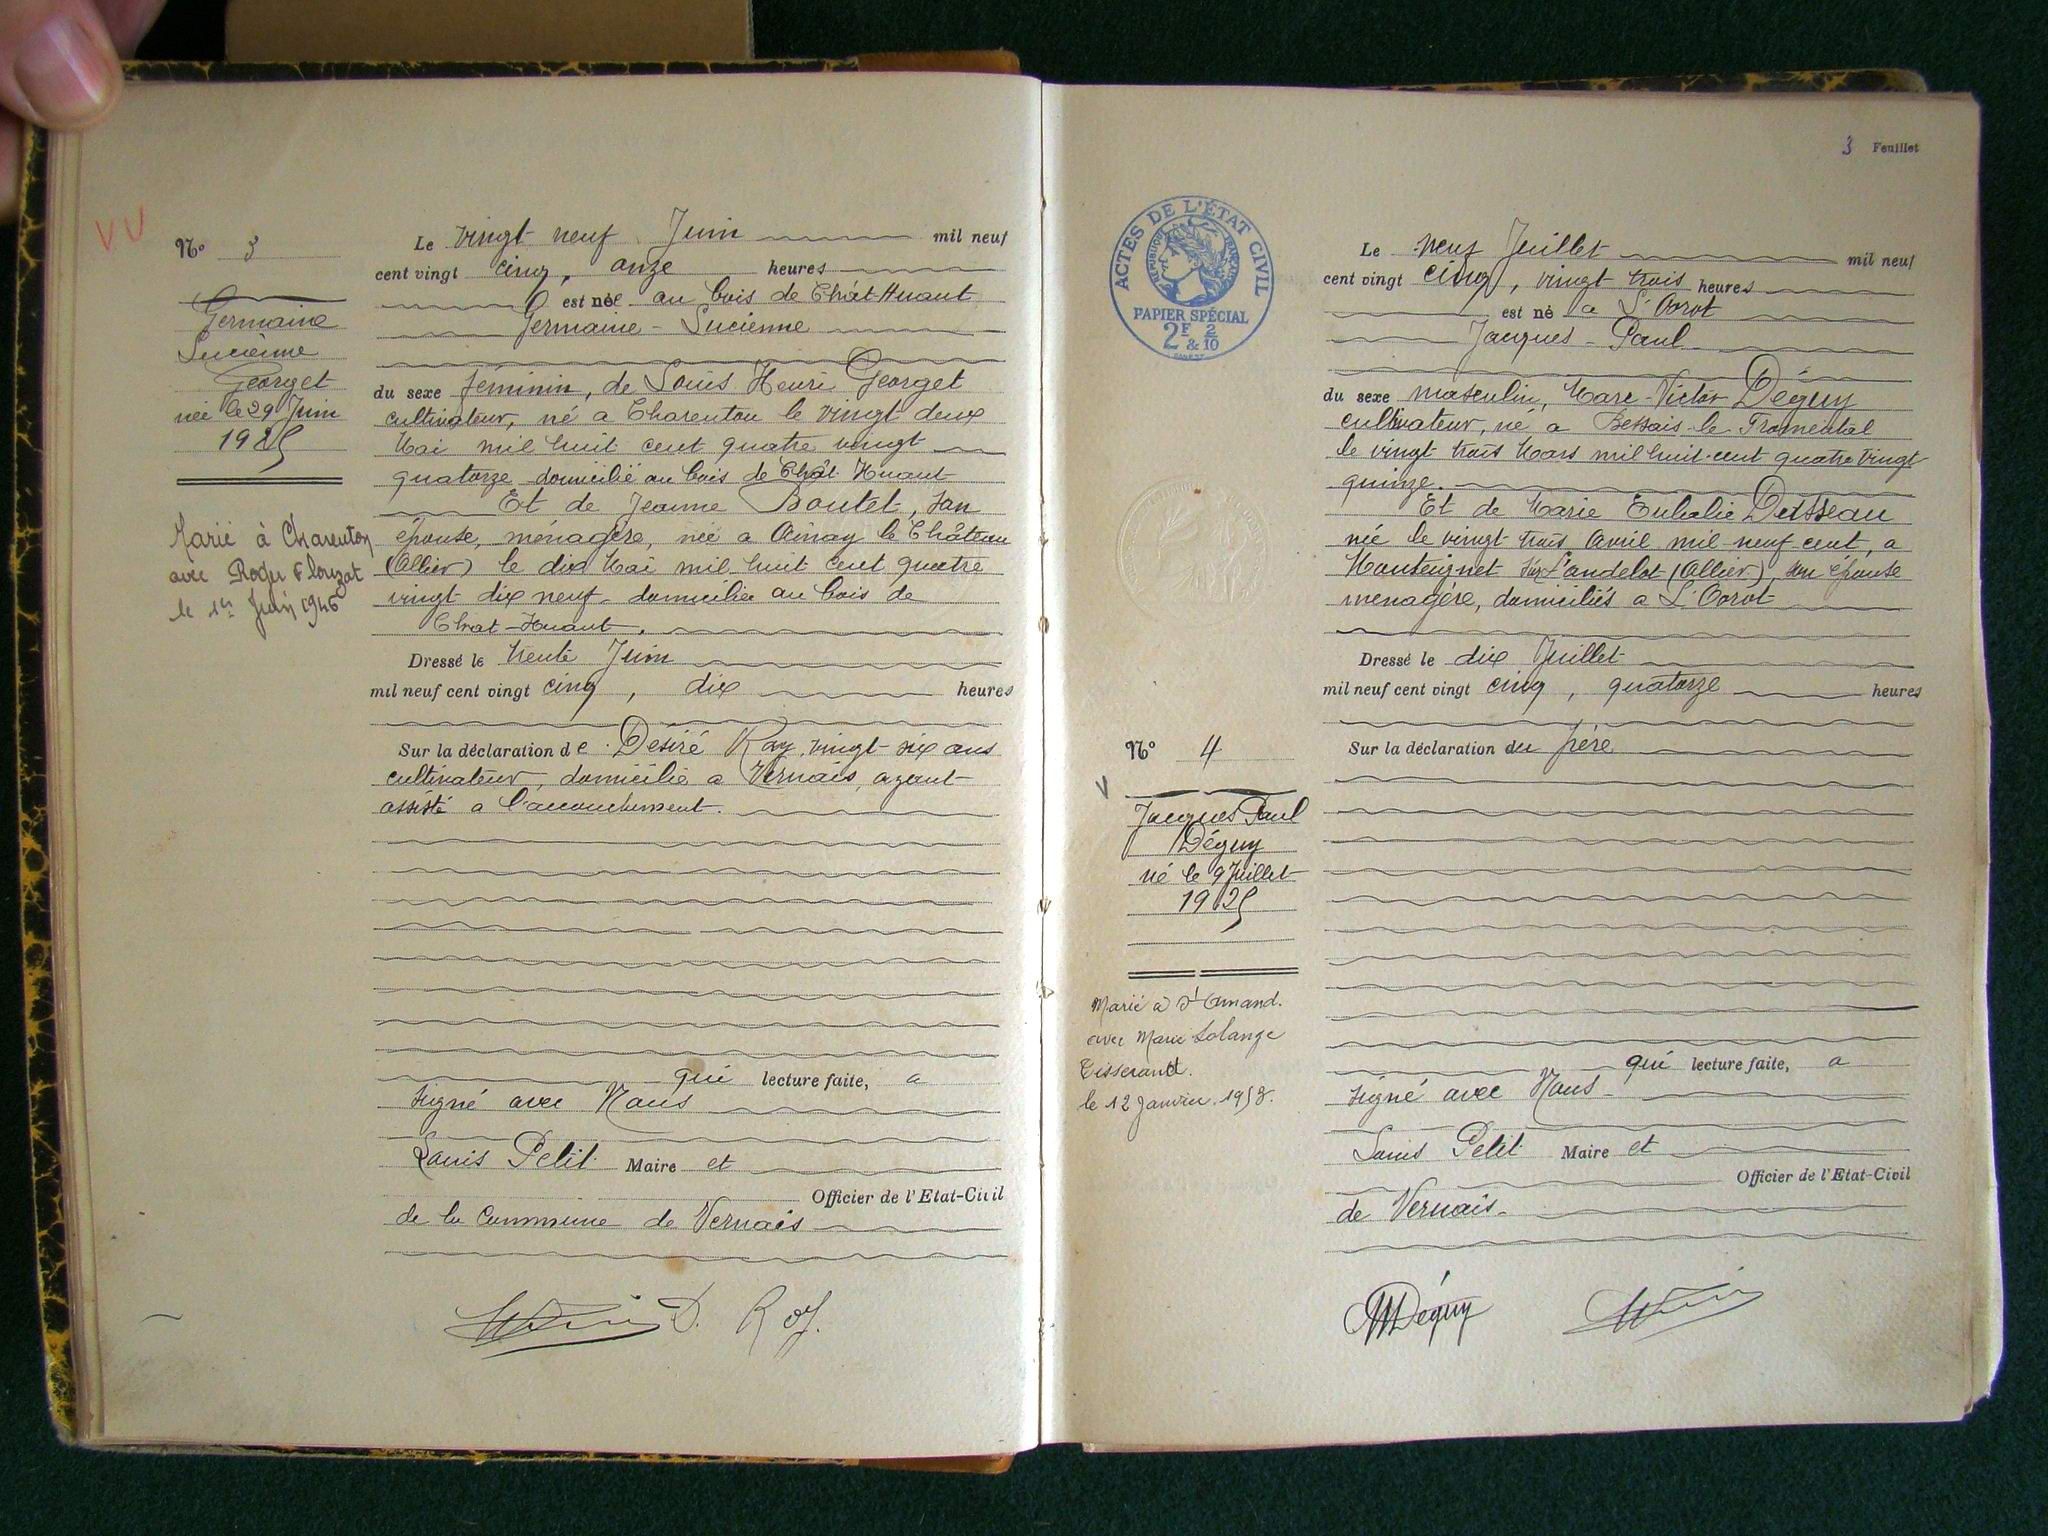 V V
N° 3
Germaine
Lucienne
Georget
née le 29 Juin
1925
Marié à Charenton
avec Roger Flouzat
le 1er Juin 1946
Le vingt neuf Juin mil neuf
cent vingt cinq, onze heures
est née au bois de Chat-Huant
Germaine - Lucienne
du sexe féminin, de Louis Henri Georget
cultivateur, né a Charenton le vingt deux
Mai mil huit cent quatre vingt
quatorze domicilié au bois de Chât Huant
Et de Jeanne Boutet, son
épouse, ménagère, née a Ainay le Château
(Allier) le dix Mai mil huit cent quatre
vingt dix neuf - domiciliée au bois de
Chat-Huant.
Dressé le trente Juin
mil neuf cent vingt cinq, dix heures
Sur la déclaration de Désiré Roy, vingt-six ans
cultivateur, domicilié a Vernais, ayant
assisté a l'accouchement.
qui lecture faite, a
signé avec Nous
Louis Petit Maire et
Officier de l'Etat-Civil
de la Commune de Vernais
D. Roy.
3 Feuillet
ACTES DE L'ÉTAT CIVIL
RÉPUBLIQUE FRANÇAISE
PAPIER SPÉCIAL
2F & 2/10
N° 4
V
Jacques Paul
Déguy
né le 9 Juillet
1925
Marié à St Amand.
avec Marie Solange
Tisserand.
le 12 Janvier 1953.
Le neuf Juillet mil neuf
cent vingt cinq, vingt trois heures
est né a L'Orot
Jacques - Paul
du sexe masculin, Marc-Victor Déguy
cultivateur, né a Bessais-le-Fromental
le vingt trois Mars mil huit-cent quatre vingt
quinze.
Et de Marie Eulalie Dutsseau
née le vingt-trois Avril mil-neuf-cent, a
Monteignet sur L'andelot (Allier), son épouse
ménagère, domiciliés a L'Orot
Dressé le dix Juillet
mil neuf cent vingt cinq, quatorze heures
Sur la déclaration du père
qui lecture faite, a
signé avec Nous
Louis Petit Maire et
Officier de l'Etat-Civil
de Vernais.
MDéguy